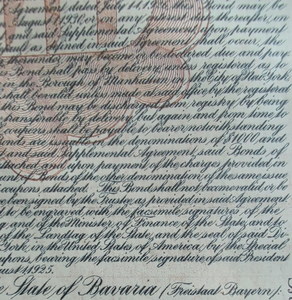 Agreement dated July 14, 19
Bonds may be
August 1, 1930, or on any interest
thereafter, on
and said Supplemental Agreement, upon payment
as defined in said Agreement, shall occur, the
hereunder, may become or be declared due and pay
Bonds shall pass by delivery unless registered as to
in the Borough of Manhattan, in the City of New York
valid unless made at said office by the registered
this Bond may be discharged from registry by being
transferable by delivery, but again and from time to
coupons shall be payable to bearer notwithstanding
Bonds are issuable in the denominations of $1000 and
said Supplemental Agreement, said Bonds of
upon payment of the charges provided in
Bonds of the other denomination of the same issue
coupons attached. This Bond shall not become valid or be
been signed by the Trustee as provided in said Agreement
to be engraved with the facsimile signatures of the
and of the Minister of Finance of the State, and
of the Landtag of the State, and the seal of said
York in the United States of America, by the Special
coupons, bearing the facsimile signature of said President
August 1, 1925.
State of Bavaria (Freistaat Bayern).